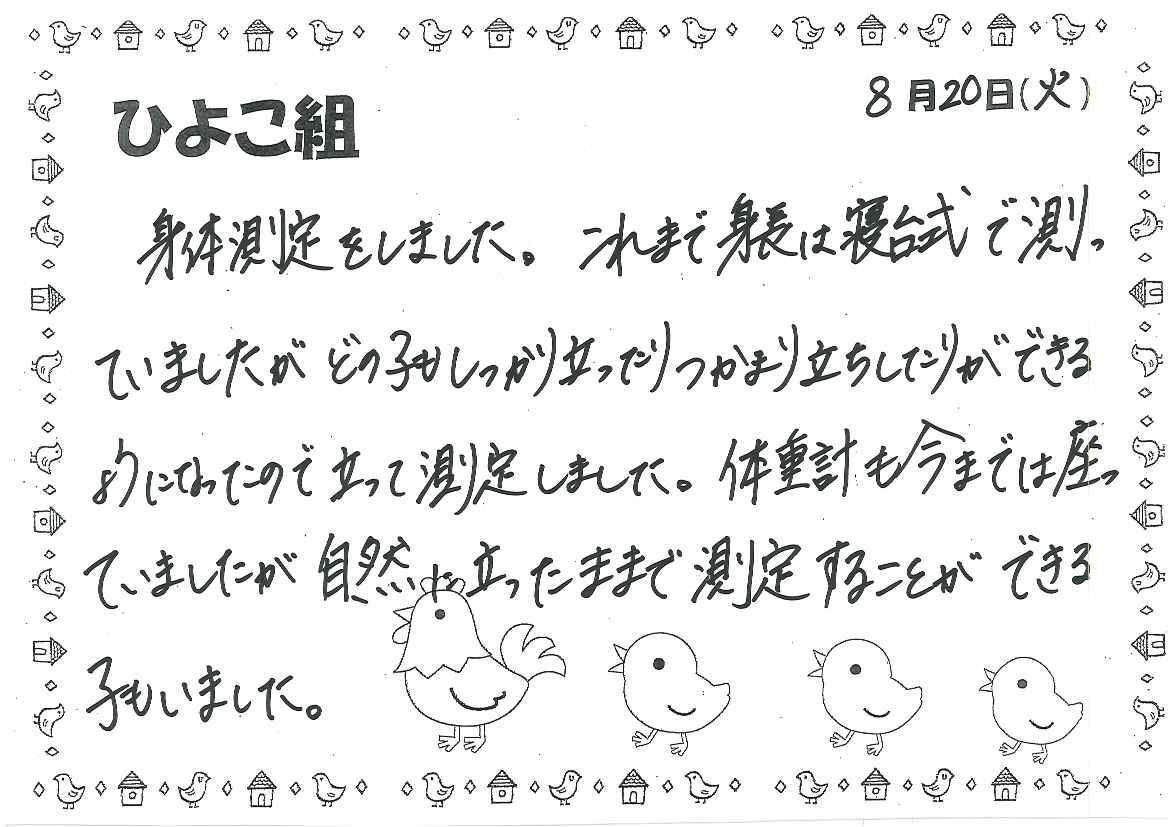 8月20日(火)
ひよこ組
身体測定をしました。これまで身長は寝台式で測っ
ていましたがどの子もしっかり立ったりつかまり立ちしたりができる
ようになったので立って測定しました。体重計も今までは座っ
ていましたが自然に立ったままで測定することができる
子もいました。